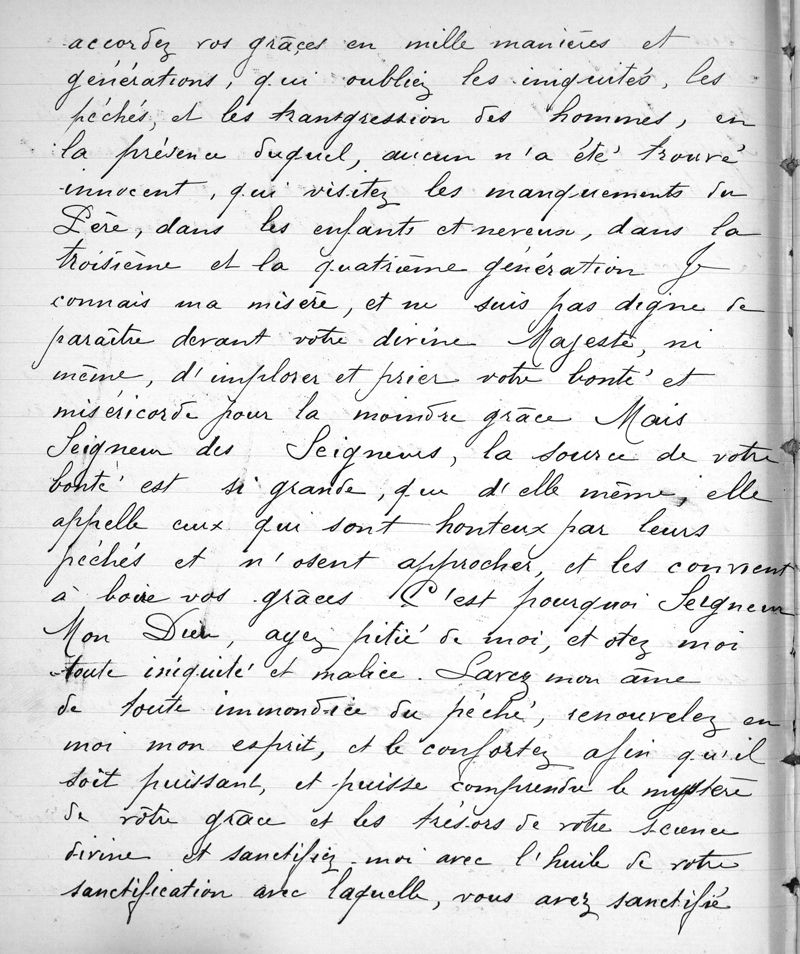 accordez vos grâces en mille manières et
générations, qui oubliez les iniquités, les
péchés, et les transgression des hommes, en
la présence duquel, aucun n'a été trouvé
innocent, qui visitez les manquements du
Père, dans les enfants et neveux, dans la
troisième et la quatrième génération Je
connais ma misère, et ne suis pas digne de
paraître devant votre divine Majesté, ni
même, d'implorer et prier votre bonté et
miséricorde pour la moindre grâce Mais
Seigneur des Seigneurs, la source de votre
bonté est si grande, que d'elle même, elle
appelle ceux qui sont honteux par leurs
péchés et n'osent approcher, et les convient
à boire vos grâces C'est pourquoi Seigneur
Mon Dieu, ayez pitié de moi, et otez moi
toute iniquité et malice. Lavez mon âme
de toute immondice du péché, renouvelez en
moi mon esprit, et le confortez afin qu'il
soit puissant, et puisse comprendre le mystère
de vôtre grâce et les trésors de votre science
divine et sanctifiez-moi avec l'huile de votre
sanctification avec laquelle, vous avez sanctifié